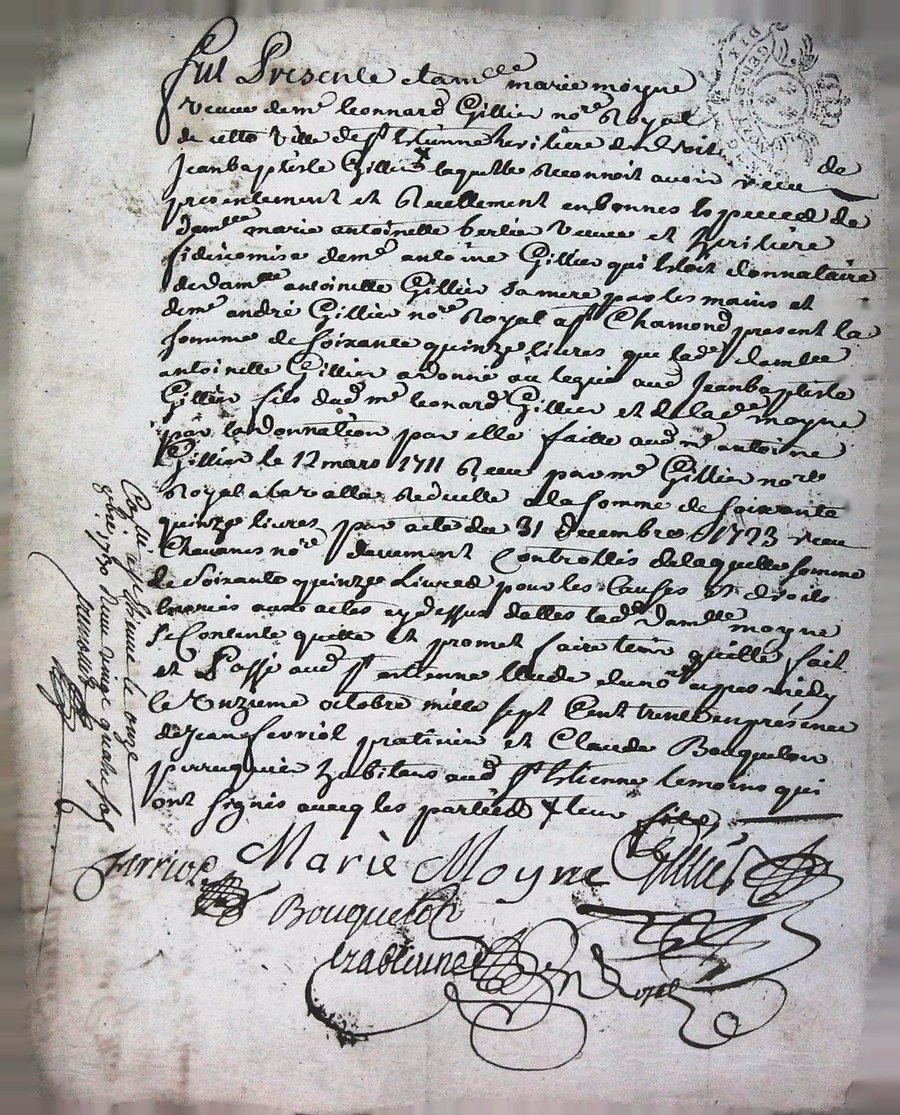 Fut Presente dam.lle marie moyne
veuve de m.e leonnard Gillier no.re Royal
de cette ville de s.t Etienne heritiere de droit de
Jean baptiste Gillier laquelle Reconnoit avoir receu
presentement et Reellement en bonnes Especes de
dem.lle marie antoinette berlier veuve et heritiere
fideicomise de m.e antoine Gillier qui Estoit donnataire
de dam.lle antoinette Gillier sa mere par les mains et
de m.e andré Gillier no.re Royal a s.t Chamond present la
somme de soixante quinze livres que lad.e dam.lle
antoinette Gillier a donné au legué aud. Jean baptiste
Gillier fils dud. m.e leonard Gillier et de lad.e moyne
par la donnation par elle faitte aud. m.e antoine
Gillier le 12 mars 1711 Receu par m.e Gillier no.re
Royal a la somme de soixante
quinze livres par acte du 31 decembre 1723 receu
Chavanes no.re deuement Controllés de laquelle somme
de soixante quinze Livres pour les Causes et droits
enoncés aux actes cy dessus lad.e dam.lle moyne
se Contente quitte et promet faire tenir quitte fait
et Passé aud. s.t estienne Etude du no.re apres midy
le Onzieme octobre mille sept Cent trente en presence
de Jean ferriol praticien et Claude Bouqueton
perruquier habitans aud. s.t Etienne temoins qui
ont signés avecq les parties
Marie Moyne Gillier
ferriol
Bouqueton
Con.llé a s.t Etienne le onze
8bre 1730 Receu vingt quatre sols